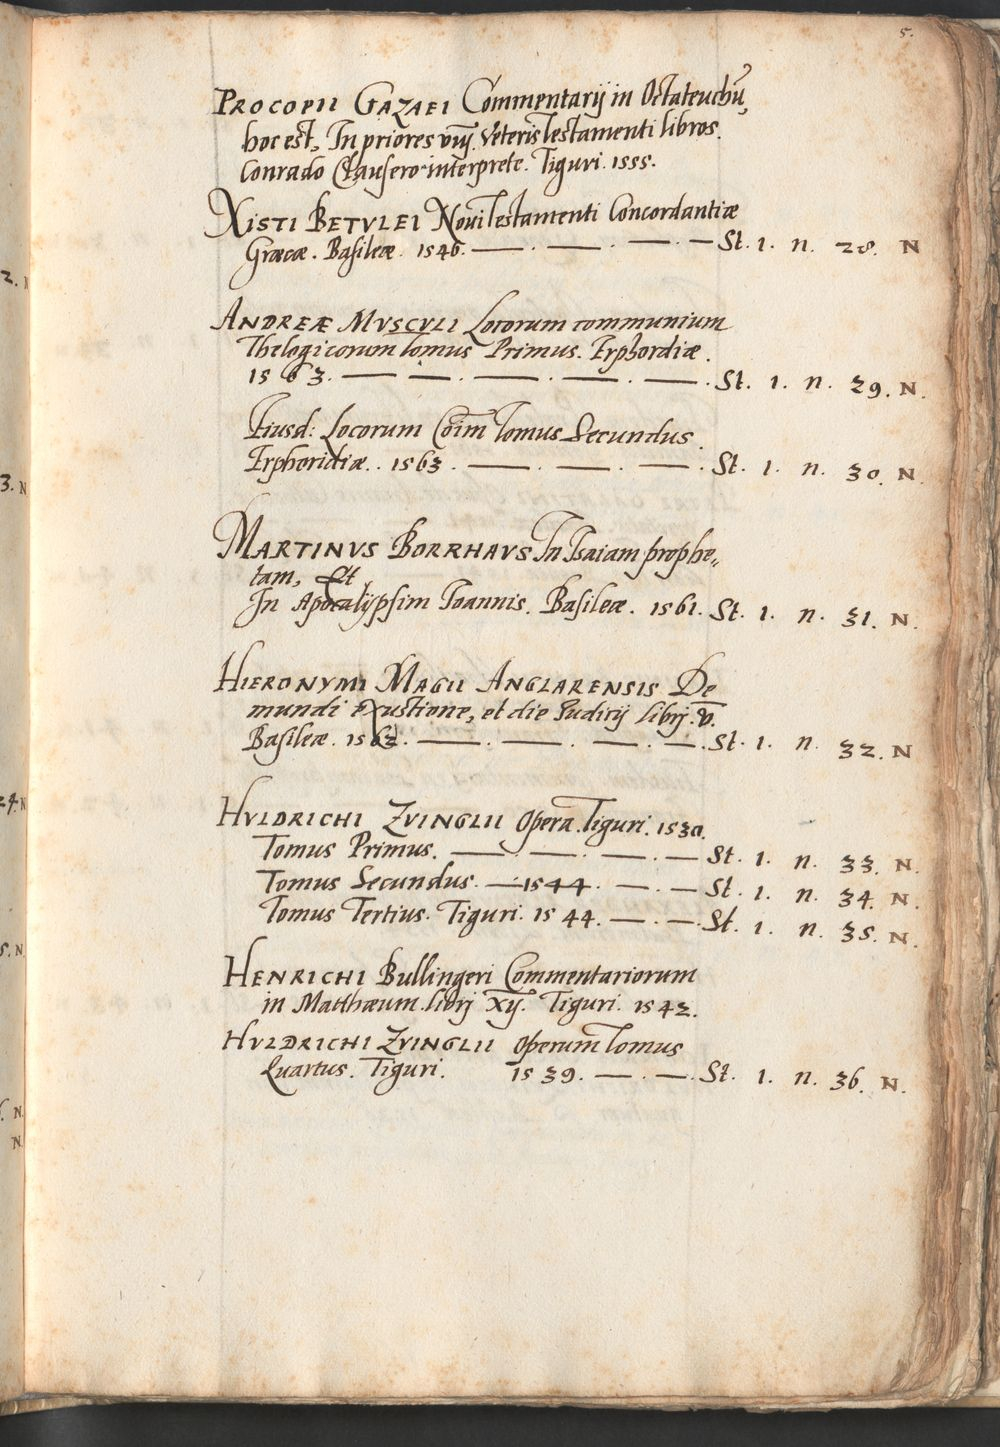 5.
PROCOPII GAZAEI Commentarij in Octateuchũ,
hoc est, In priores viij. Veteris Testamenti libros.
Conrado Clausero interprete. Tiguri. 1555.
XISTI BETVLEI Noui Testamenti Concordantiæ
Græcæ. Basileæ. 1546. — . — . — . — St. 1. n. 28. N
ANDREÆ MVSCVLI Locorum communium
Thelogicorum tomus Primus. Erphordiæ.
1563. — — . — . — . — . St. 1. n. 29. N.
Eiusd: Locorum Cõim Tomus Secundus.
Erphoridiæ. . 1563. — . — . — . St. 1. n. 30. N
MARTINVS BORRHAVS In Isaiam prophe„
tam, Et
In Apocalÿpsim Ioannis. Basileæ. 1561. St. 1. n. 31. N.
HIERONYMI MAGII ANGLARENSIS De
mundi exustione, et die Iudicij librj. v.
Basileæ. 1562. — . — . — . — . St. 1. n. 32. N
HVLDRICHI ZVINGLII Opera. Tiguri. 1530.
Tomus Primus. — . — . — . — St. 1. n. 33. N.
Tomus Secundus. — 1544. — . — St. 1. n. 34. N.
Tomus Tertius. Tiguri. 1544. — . — . St. 1. n. 35. N.
HENRICHI Bullingeri Commentariorum
in Matthæum. librj Xij. Tiguri. 1542.
HVLDRICHI ZVINGLII Operum Tomus
Quartus. Tiguri. 1539. — . — . St. 1. n. 36. N.
2. N
3. N
24. N
5. N
N.
N.